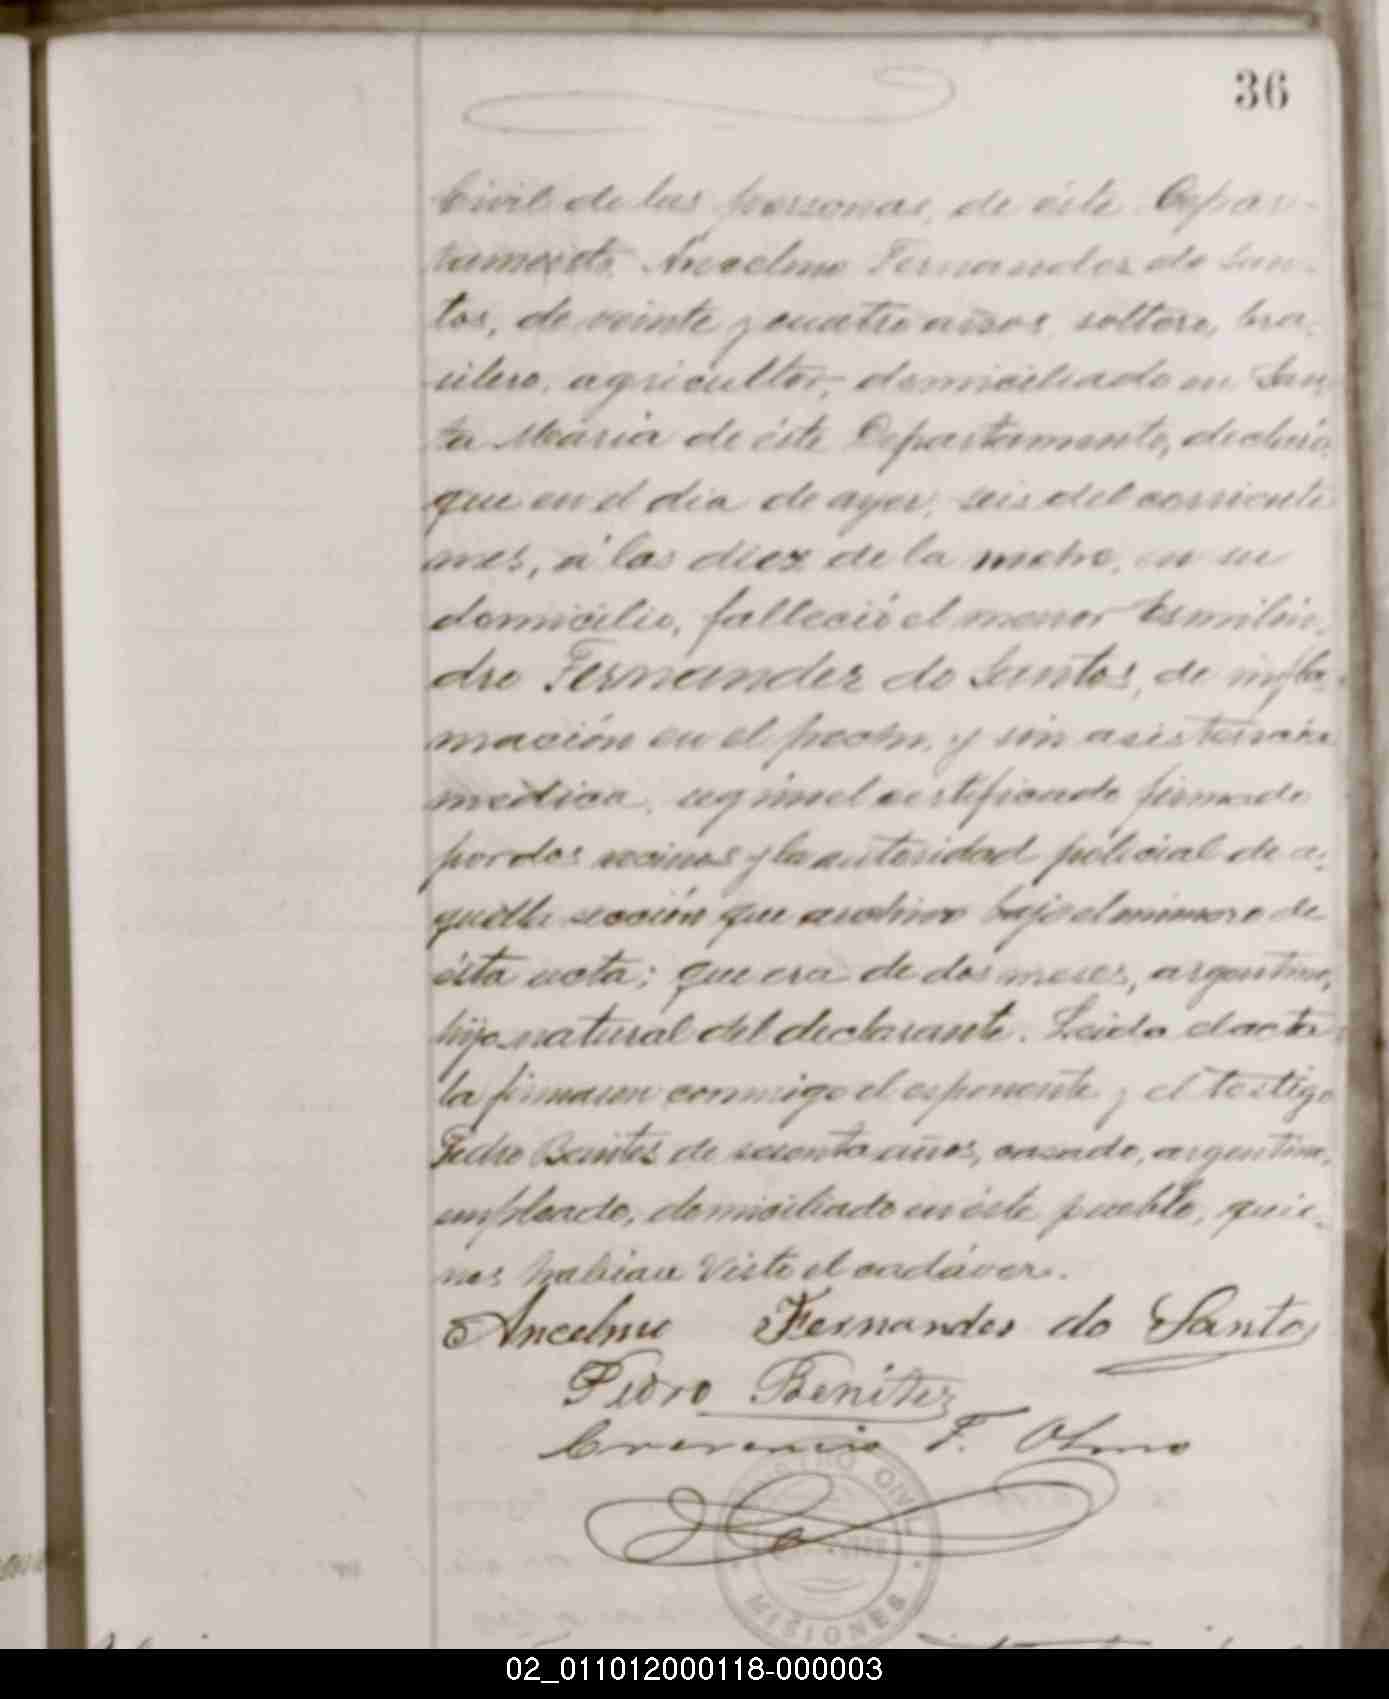 36
Civil de las personas, de éste Depar-
tamento Anselmo Fernandez do San-
tos, de veinte y cuatro años, soltero, bra-
silero, agricultor, domiciliado en San-
ta Maria de éste Departamento, declaró
que en el dia de ayer, seis del corriente
mes, á las diez de la noche, en su
domicilio, falleció el menor Esmilin-
dro Fernandez do Santos, de infla-
mación en el pecho, y sin asistencia
médica, segun el certificado firmado
por dos vecinos y la autoridad policial de a-
quella sección que archivo bajo el número de
ésta acta; que era de dos meses, argentino,
hijo natural del declarante. Leida el acta
la firmaron conmigo el esponente y el testigo
Pedro Benites de sesenta años, casado, argentino,
empleado, domiciliado en éste pueblo, quie-
nes habian visto el cadáver.
Ancelmo Fernandes do Santos
Pedro Benitez
F. Olmo
REGISTRO CIVIL
MISIONES
02_011012000118-000003